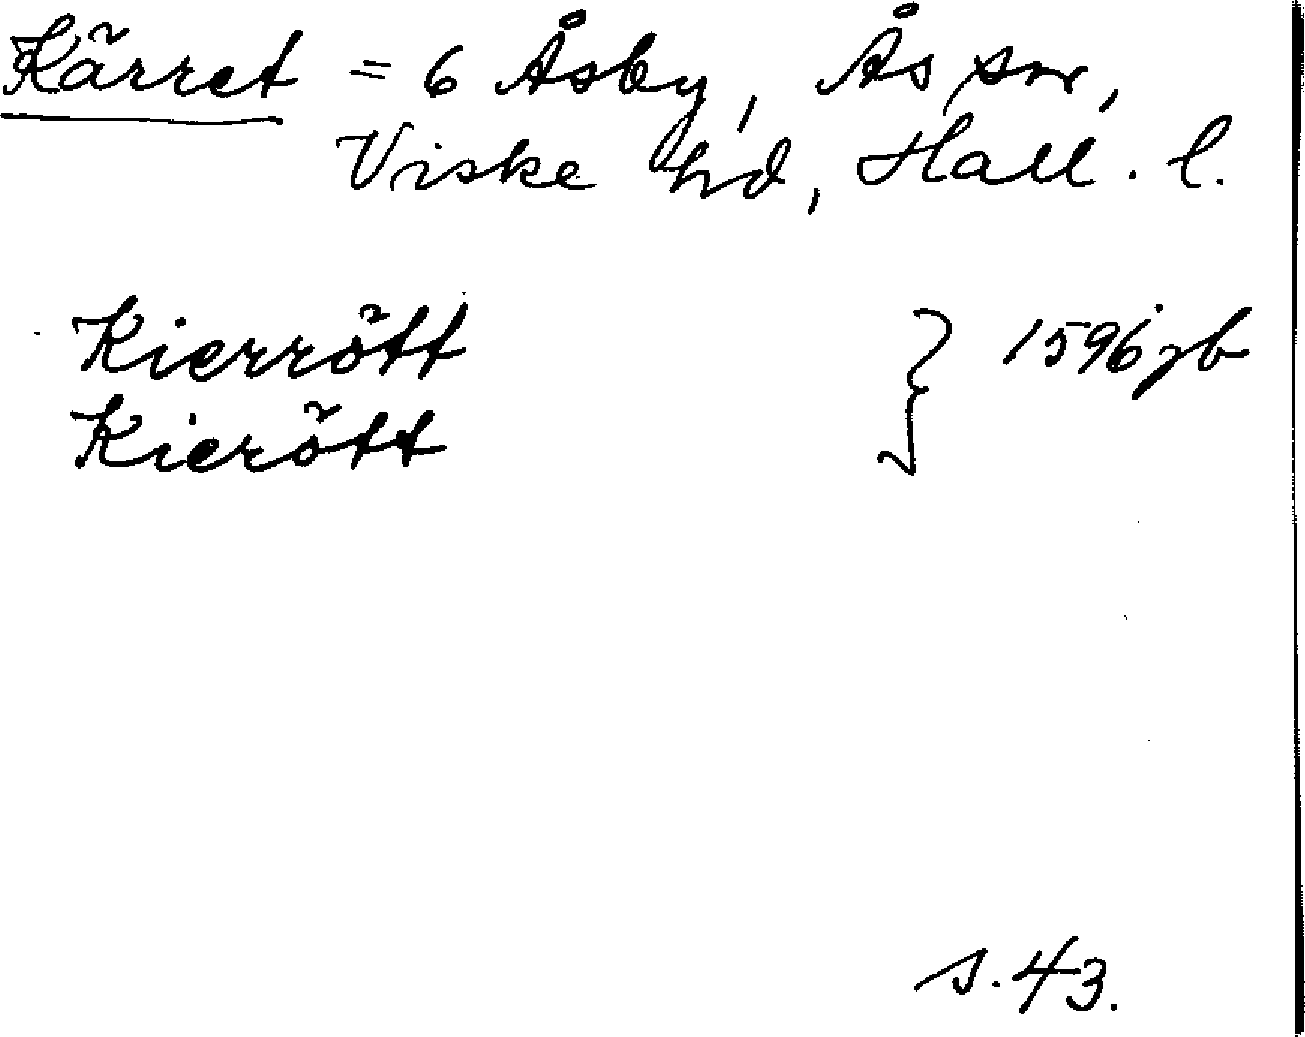 Kärret = 6 Åsby, Ås sn,
Viske hd, Hall. l.
Kierrött } 1596 jb
Kierött
s. 43.